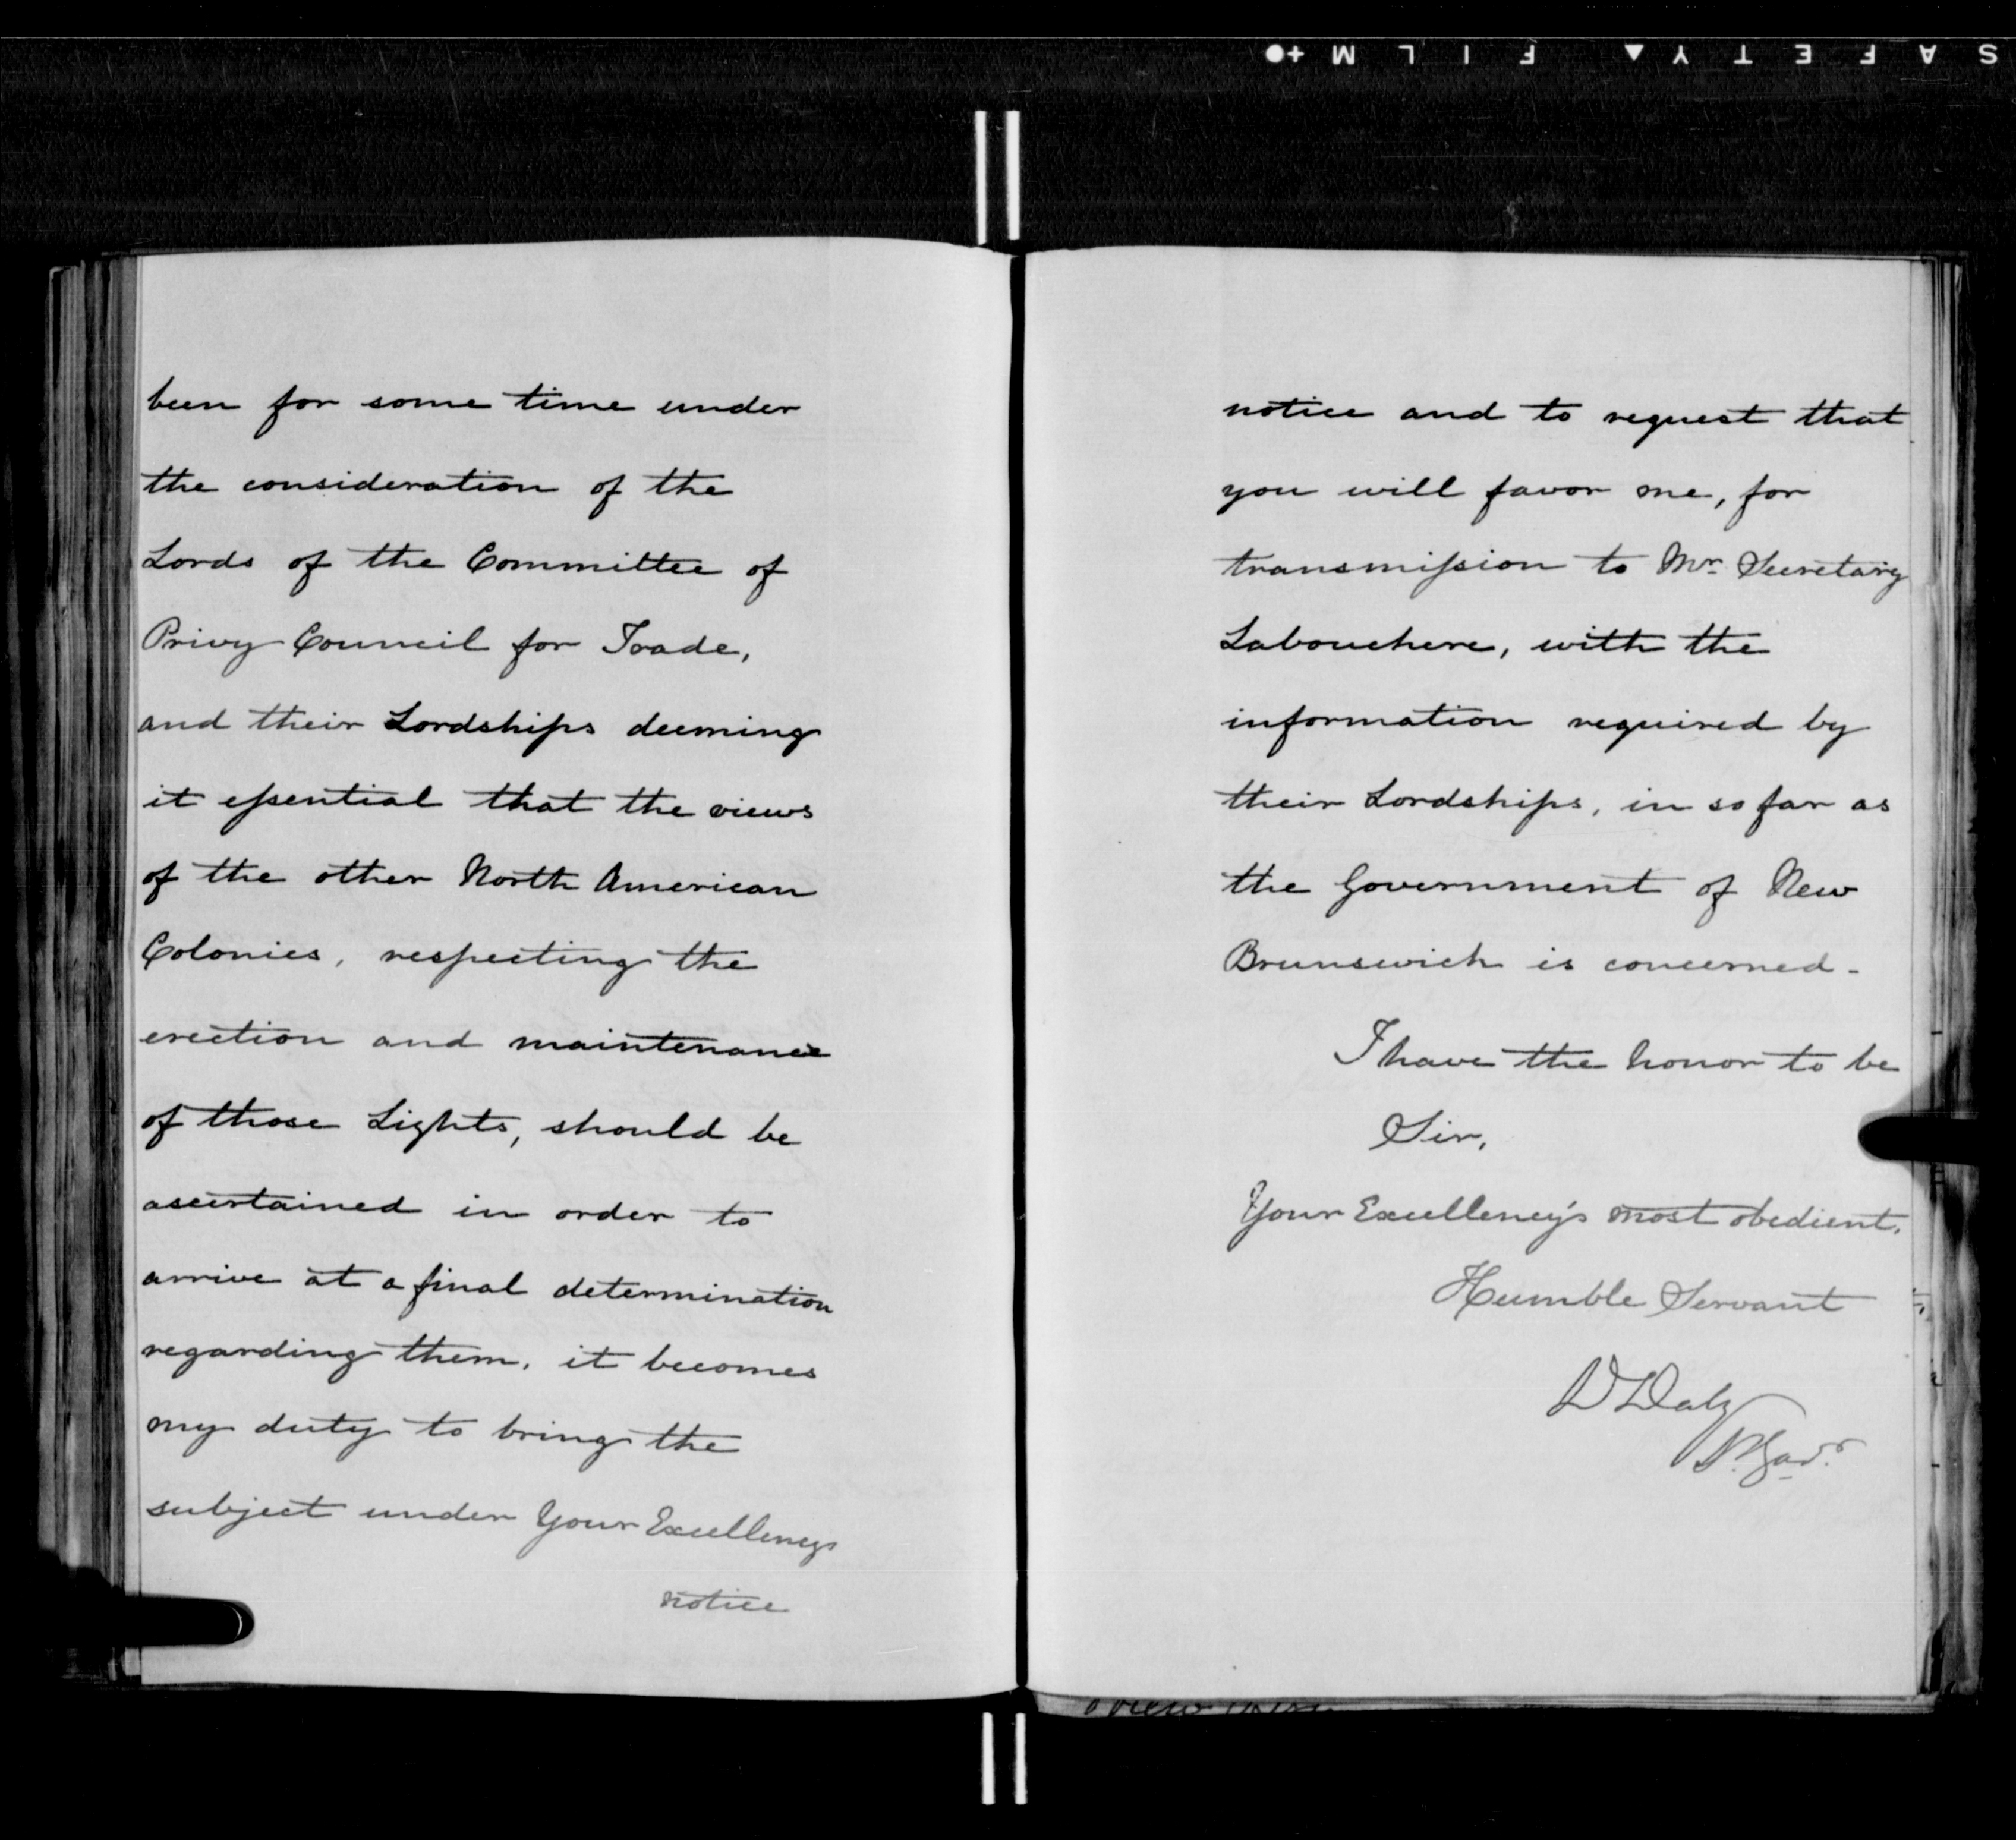 SAFETY FILM
been for some time under
the consideration of the
Lords of the Committee of
Privy Council for Trade,
and their Lordships deeming
it essential that the views
of the other North American
Colonies, respecting the
erection and maintenance
of those Lights, should be
ascertained in order to
arrive at a final determination
regarding them, it becomes
my duty to bring the
subject under Your Excellencys
notice
notice and to request that
you will favor me, for
transmission to Mr. Secretary
Labouchere, with the
information required by
their Lordships, in so far as
the Government of New
Brunswick is concerned -
I have the honor to be
Sir,
Your Excellency's most obedient.
Humble Servant
D Daly